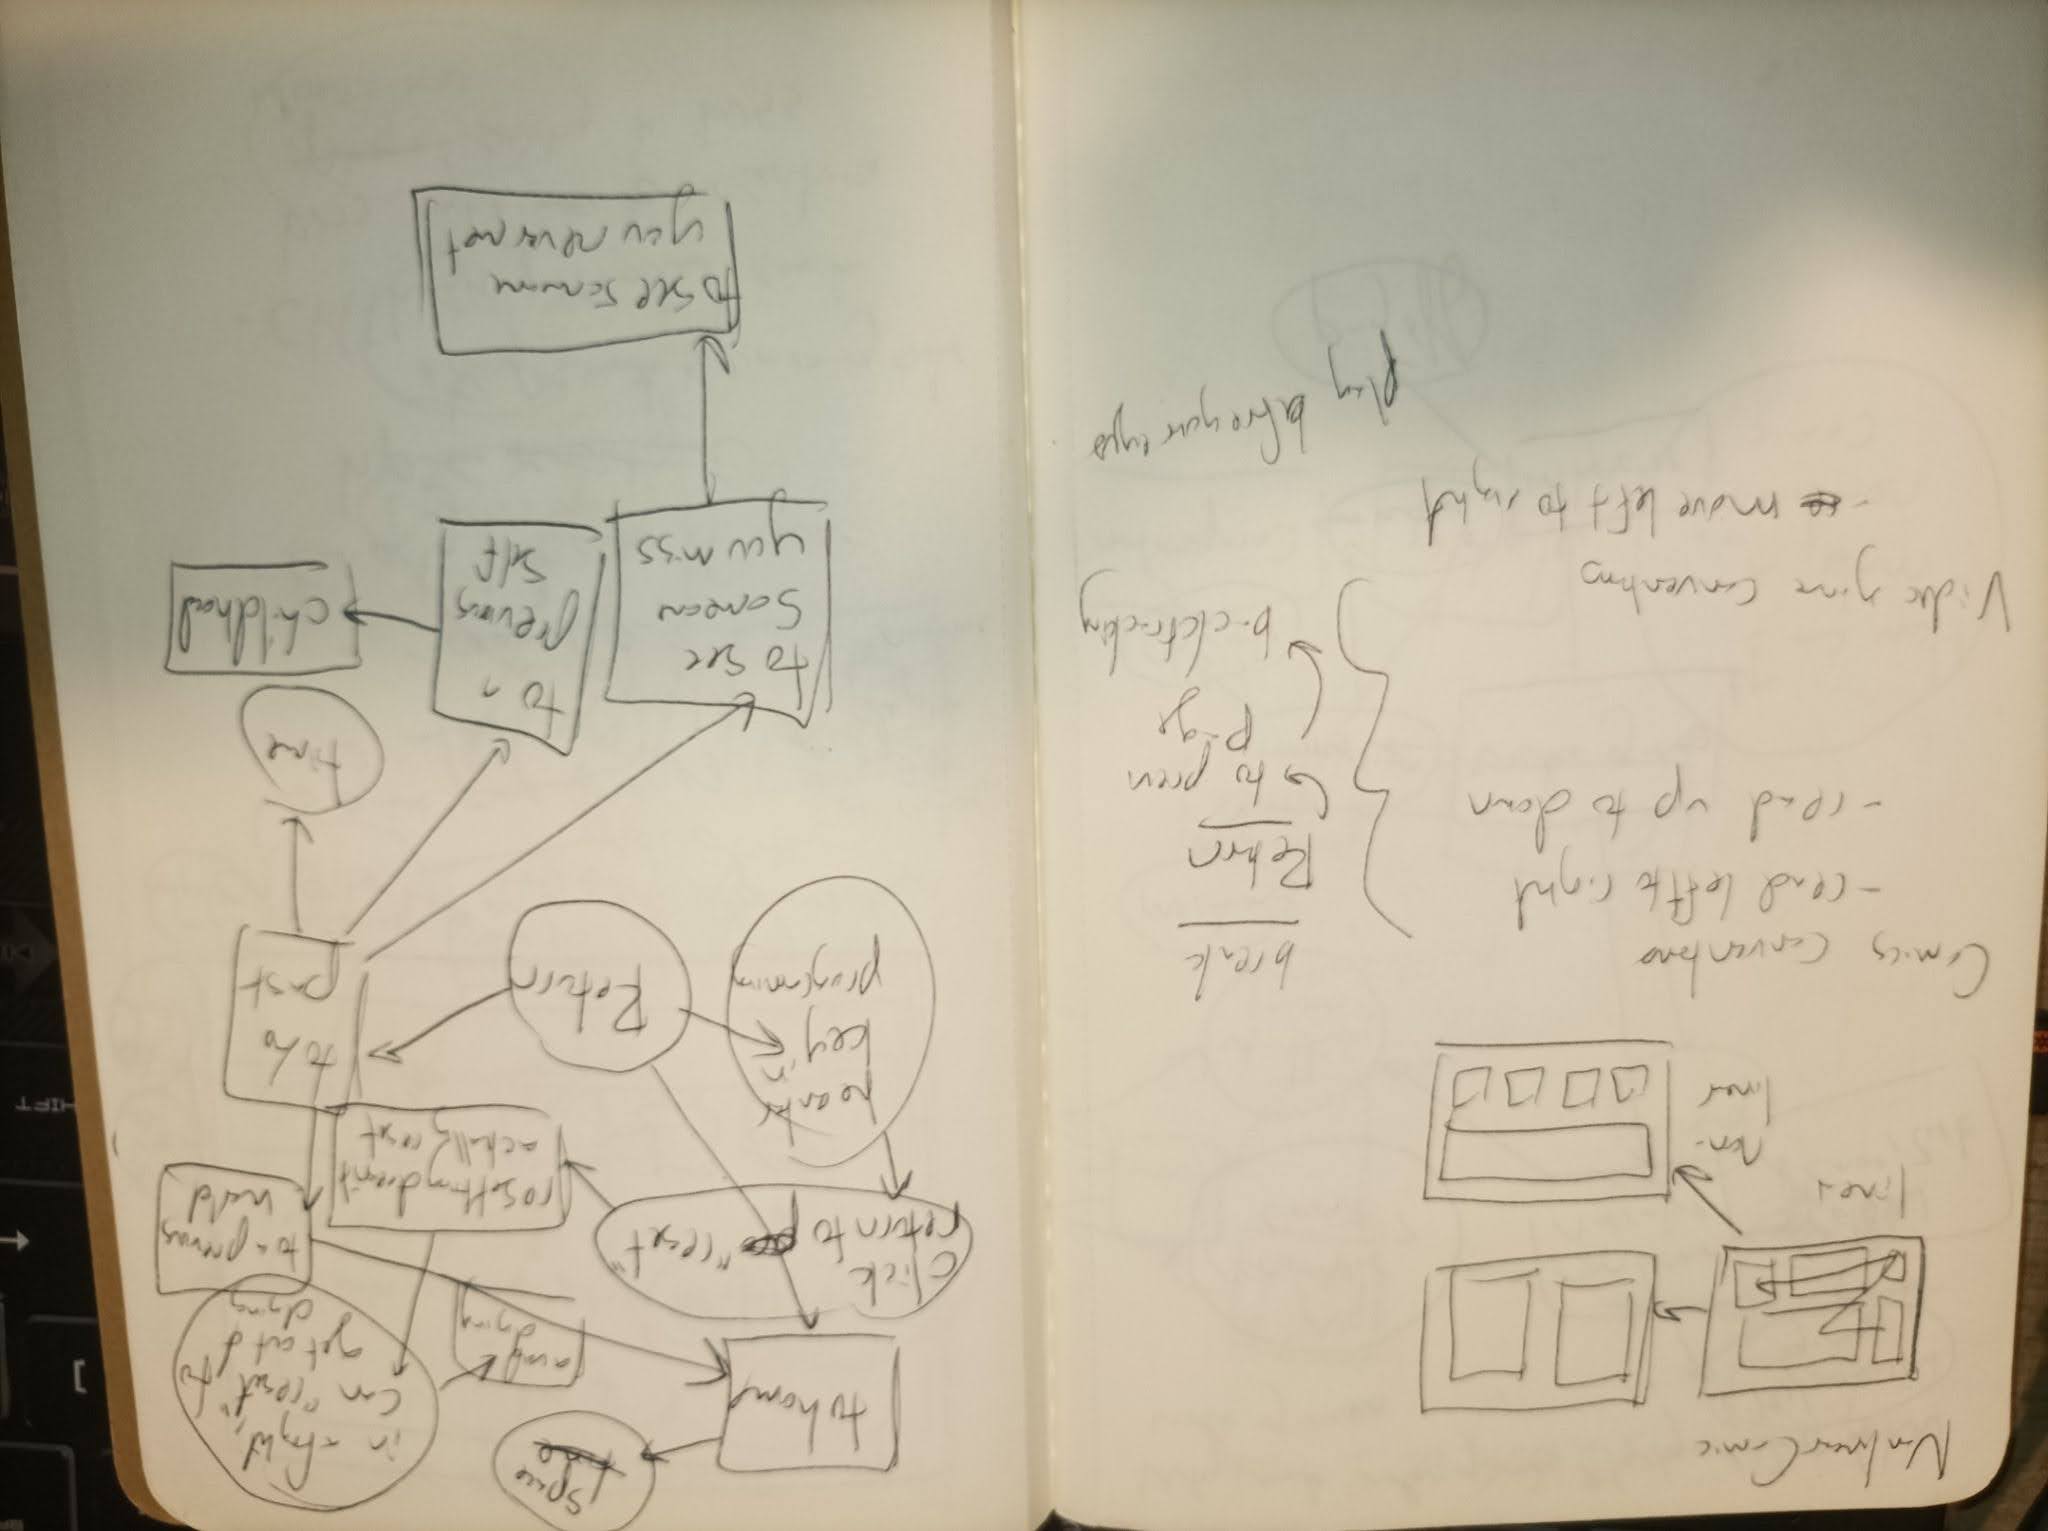 Nonlinear Comic
linear
Non-
linear
Comics conventions
- read left to right
- read up to down
Video game conventions
- move left to right
break
Return
↳ to prev
page
backtracking
play before your eyes
to home
space
avoid
dying
in a fight,
can "reset" to
get out of
dying
to a previous
world
click
return to "reset"
resetting doesn't
actually reset
to ho
past
Return
key in
programming
time
to a
previous
self
childhood
to see
someone
you miss
to see someone
you never met
SHIFT
[